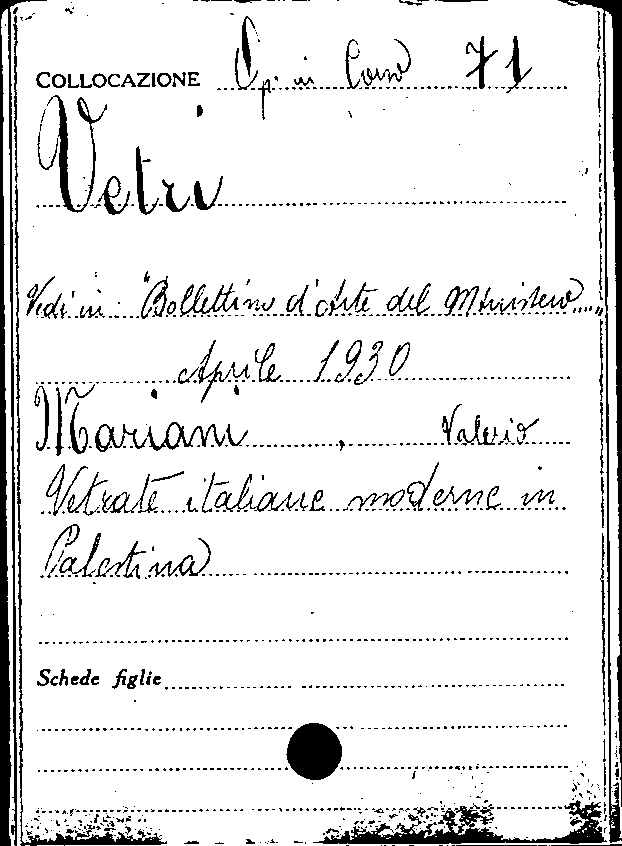 COLLOCAZIONE Op. in Corso 71
Vetri
Vedi in "Bollettino d'Arte del Ministero....."
Aprile 1930
Mariani, Valerio
Vetrate italiane moderne in
Palestina
Schede figlie